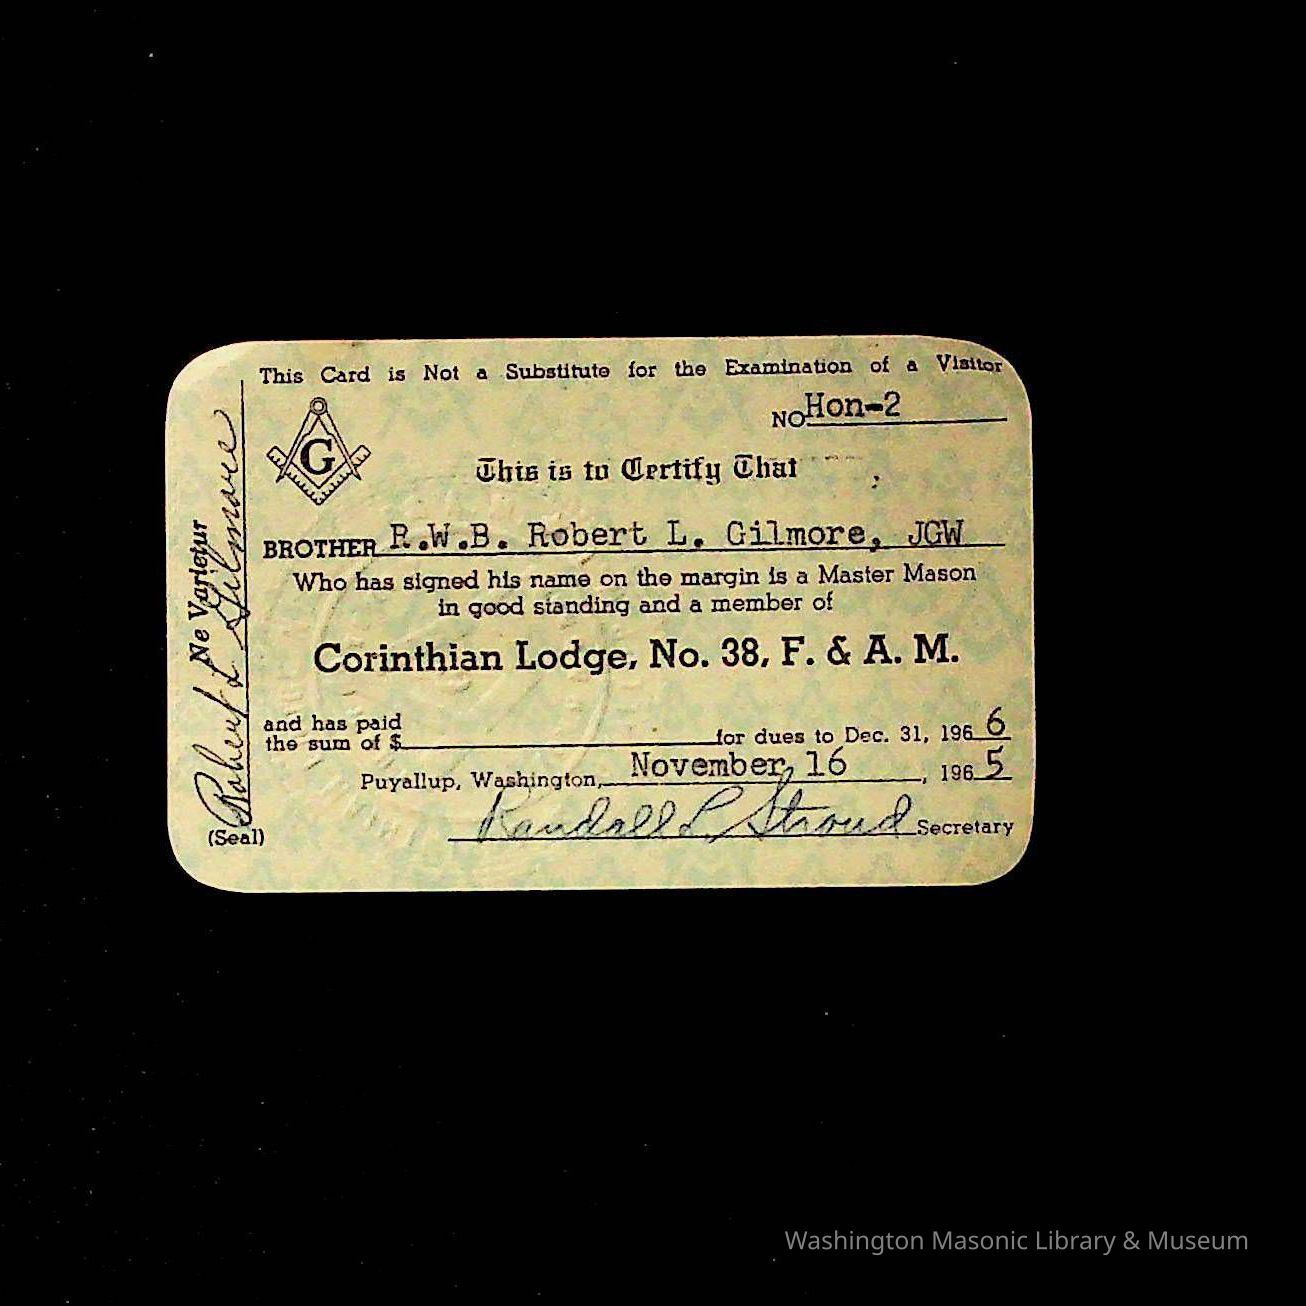 This Card is Not a Substitute for the Examination of a Visitor
NO Hon-2
G
This is to Certify That
BROTHER R.W.B. Robert L. Gilmore, JGW
Who has signed his name on the margin is a Master Mason
in good standing and a member of
Corinthian Lodge, No. 38, F. & A. M.
and has paid
the sum of $ for dues to Dec. 31, 1966
Puyallup, Washington, November 16, 1965
Randall L Stroud Secretary
(Seal)
Ne Varietur
Robert L Gilmore
Washington Masonic Library & Museum